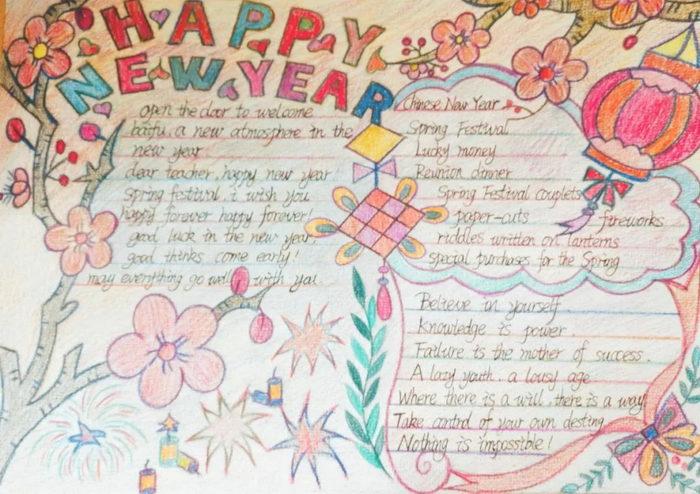 HAPPY
NEW YEAR
open the door to welcome
baifu, a new atmosphere in the
new year
dear teacher, happy new year!
spring festival, i wish you
happy forever happy forever!
good luck in the new year,
good thinks come early!
may everything go well with you
Chinese New Year
Spring Festival
Lucky money
Reunion dinner
Spring Festival couplets
paper-cuts fireworks
riddles written on lanterns
special purchases for the Spring
Believe in yourself.
Knowledge is power.
Failure is the mother of success.
A lazy youth, a lousy age
Where there is a will, there is a way
Take control of your own destiny
Nothing is impossible!